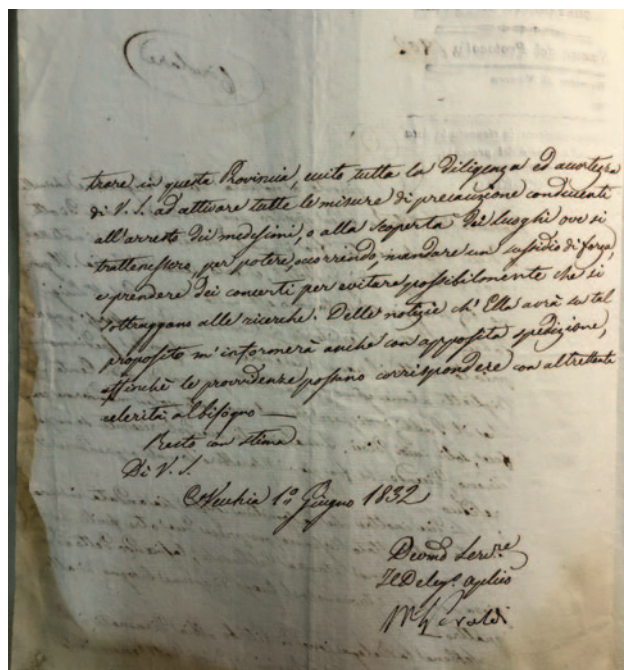 Circolare
trare in questa Provincia, ecito tutta la diligenza ed accortezza
di V. S. ad attivare tutte le misure di precauzione conducenti
all'arresto dei medesimi, o alla scoperta dei luoghi ove si
trattenessero, per potere, occorrendo, mandare un sussidio di forza,
e prendere dei concerti per evitare possibilmente che si
sottraggano alle ricerche. Delle notizie ch' Ella avrà su tal
proposito m' informerà anche con apposita spedizione,
affinchè le providenze possano corrispondere con altrettanta
celerità al bisogno
Resto con stima
Di V. S.
CVecchia 1º Giugno 1832
Devmo Servre
Il Delegº aplico